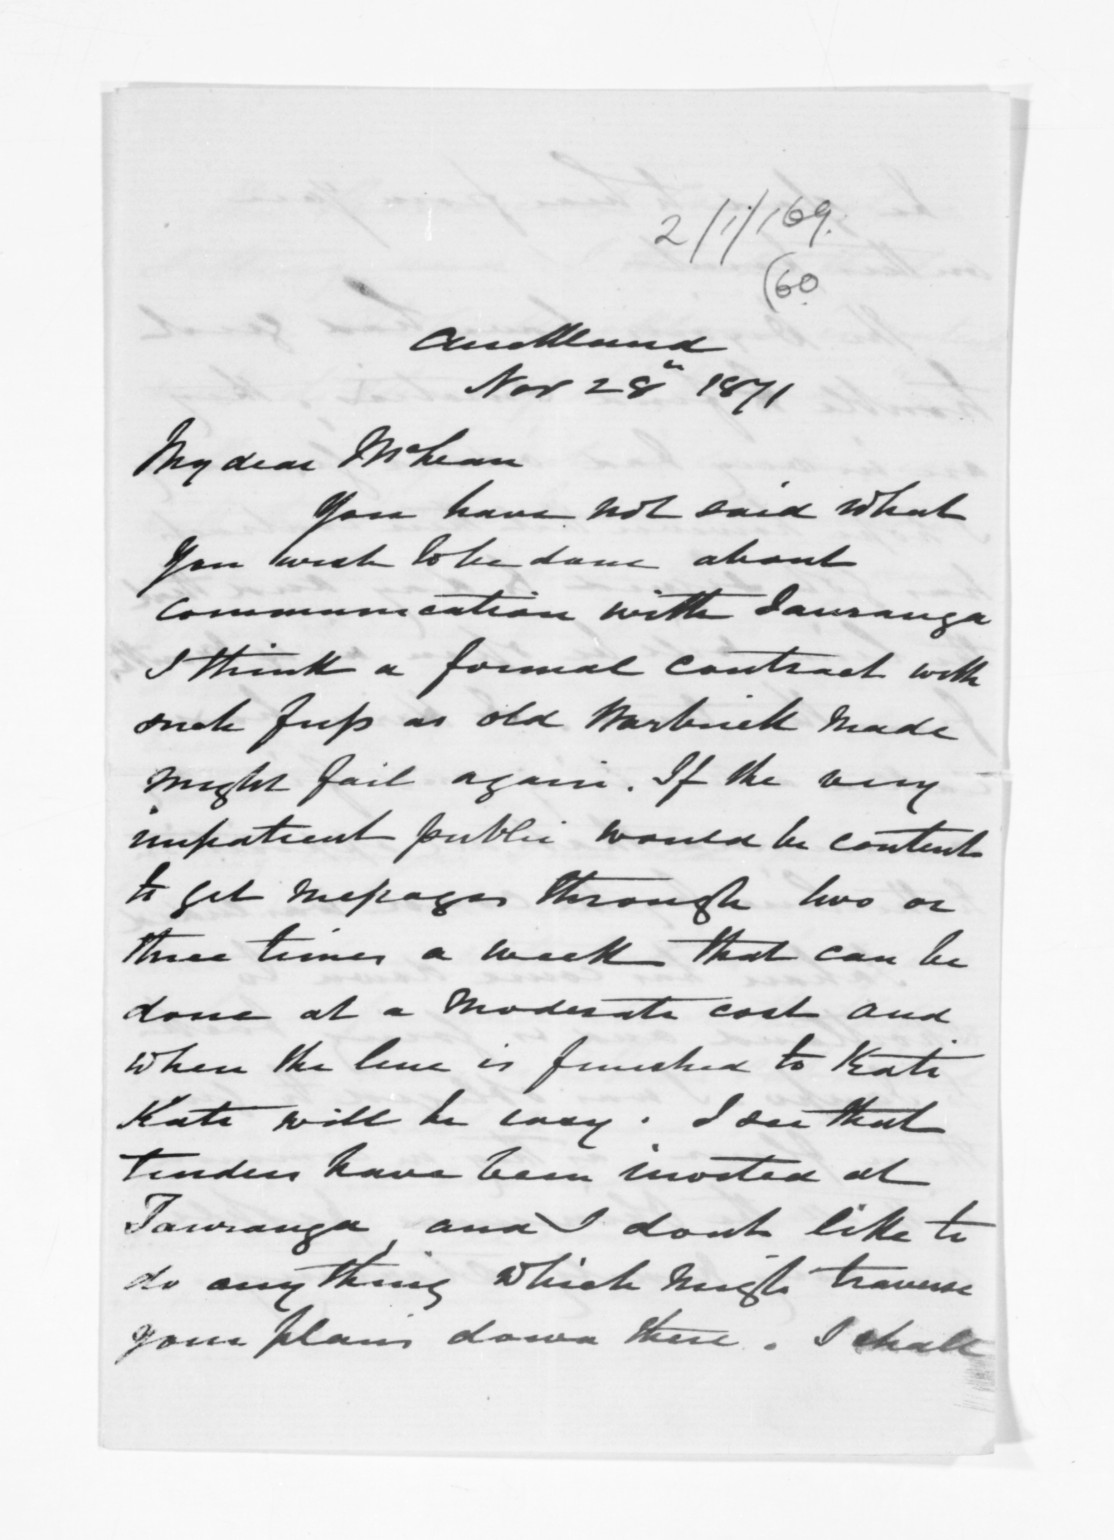 2/1/169.
(60
Auckland
Nov 28th 1871
My dear McLean
You have not said what
You wish to be done about
communication with Tauranga
I think a formal contract with
such fuss as old Warbrick made
might fail again. If the very
impatient public would be content
to get messages through two or
three times a week that can be
done at a moderate cost and
when the line is finished to Kati
Kati will be easy. I see that
tenders have been invited at
Tauranga, and I dont like to
do anything which might traverse
your plans down there. I shall